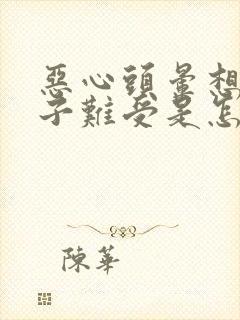 惡心頭暈想
子難受是怎
陳華